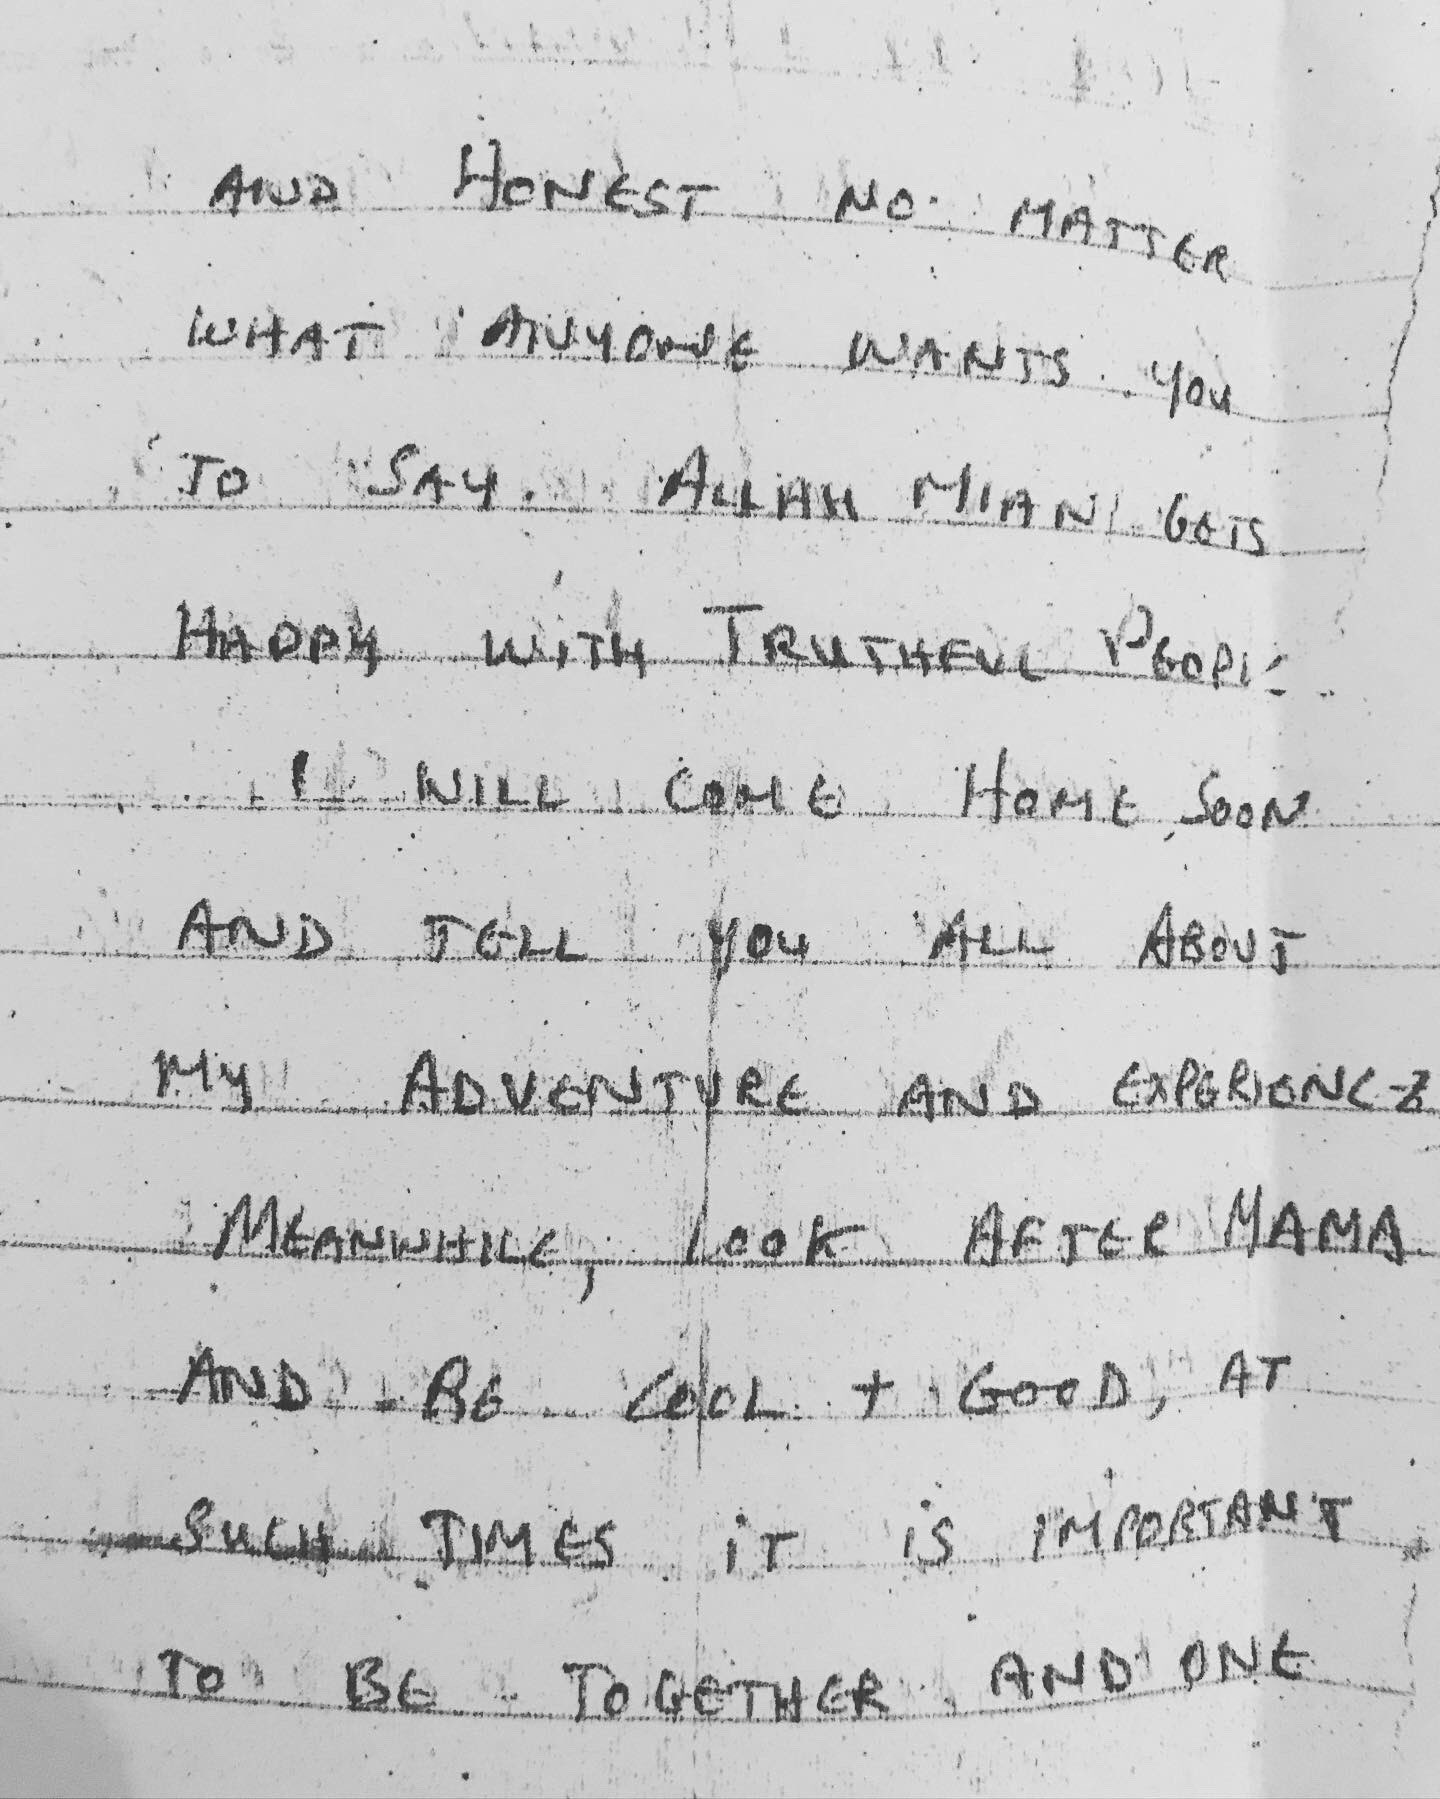 AND HONEST NO MATTER
WHAT ANYONE WANTS YOU
TO SAY. ALLAH MIAN GETS
HAPPY WITH TRUTHFUL PEOPLE
I WILL COME HOME SOON
AND TELL YOU ALL ABOUT
MY ADVENTURE AND EXPERIENCE
MEANWHILE, LOOK AFTER MAMA
AND BE COOL + GOOD, AT
SUCH TIMES IT IS IMPORTANT
TO BE TOGETHER AND ONE